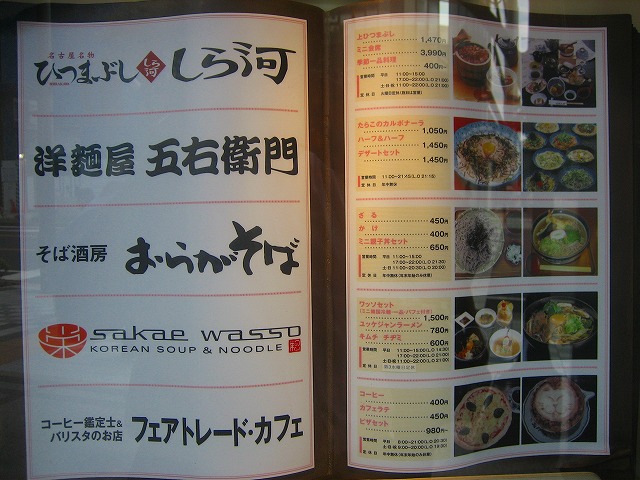 名古屋名物
ひつまぶし しら河 しら河
洋麺屋 五右衛門
そば酒房 おらがそば
sakae wasso
KOREAN SOUP & NOODLE
コーヒー鑑定士&
バリスタのお店
フェアトレード・カフェ
上ひつまぶし 1,470円
ミニ会席 3,990円
季節一品料理 400円〜
営業時間 平日 11:00~15:00
17:00~22:00(L.O 21:00)
土日祝 11:00~22:00(L.O 21:00)
定休日
たらこのカルボナーラ 1,050円
ハーフ&ハーフ 1,450円
デザートセット 1,450円
営業時間 11:00~21:45(L.O 21:15)
定休日 年中無休
ざる 450円
かけ 400円
ミニ親子丼セット 650円
営業時間 平日 11:00~15:00
17:00~22:00(L.O 21:30)
土日祝 11:00~20:30(L.O 20:00)
定休日 年中無休(年末年始のみ休館)
ワッソセット 1,500円
ユッケジャンラーメン 780円
キムチ チヂミ 600円
営業時間 平日 11:00~15:00(L.O 14:30)
17:00~22:00(L.O 21:00)
土日祝 11:00~22:00(L.O 21:00)
定休日 第3水曜日定休
コーヒー 400円
カフェラテ 450円
ピザセット 980円〜
営業時間 平日 8:00~21:00(L.O 20:30)
土日祝 9:00~20:00(L.O 19:30)
定休日 年中無休(年末年始のみ休館)